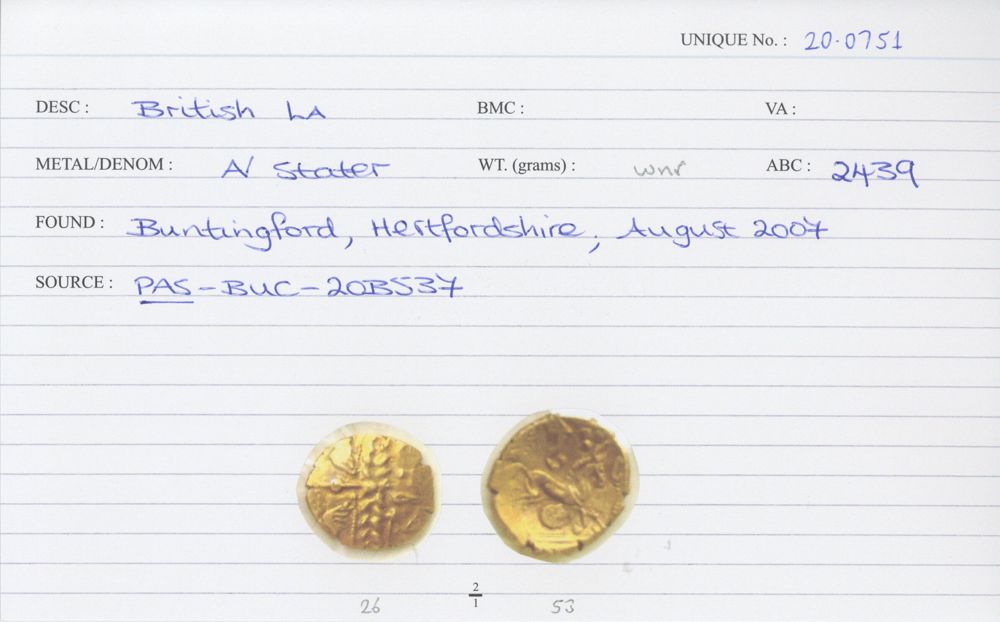 UNIQUE No. : 20.0751
DESC : British LA BMC : VA :
METAL/DENOM : A/ Stater WT. (grams) : wnr ABC : 2439
FOUND : Buntingford, Hertfordshire, August 2007
SOURCE : PAS-BUC-20B537
2
1
26 53